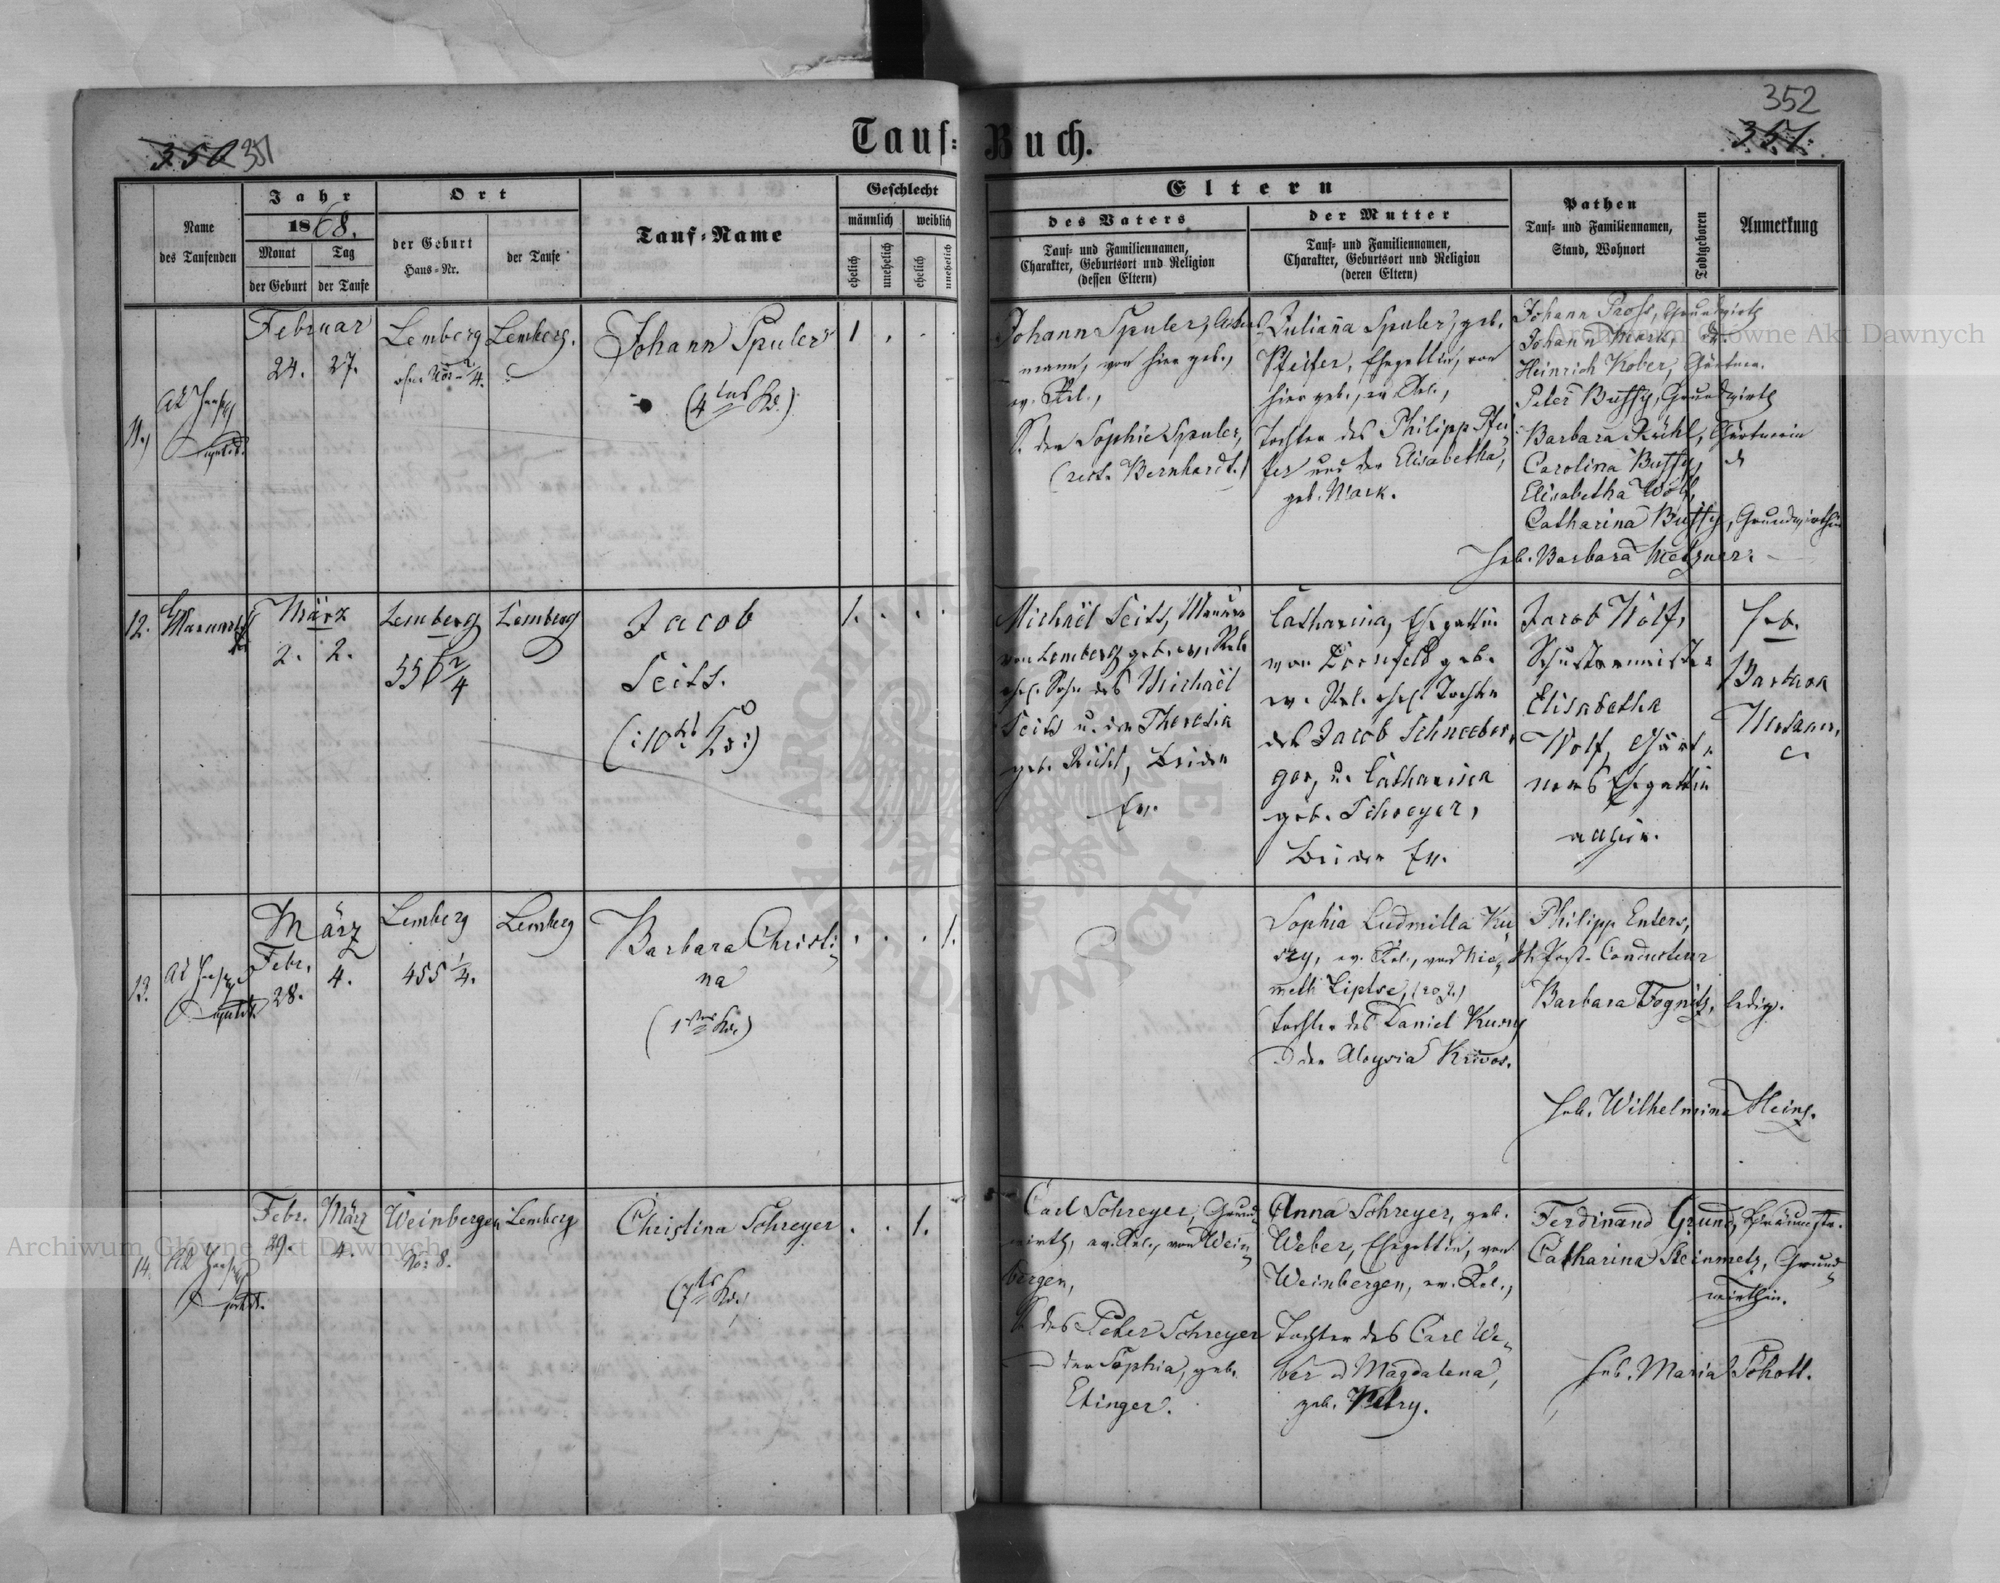 352
351.
350 351
Tauf-Buch.
Name
des Taufenden
Jahr
1868.
Monat
Tag
der Geburt
der Taufe
Ort
der Geburt
Haus-Nr.
der Taufe
Tauf-Name
Geschlecht
männlich
weiblich
ehelich
unehelich
ehelich
unehelich
Eltern
des Vaters
Tauf- und Familiennamen,
Charakter, Geburtsort und Religion
(dessen Eltern)
der Mutter
Tauf- und Familiennamen,
Charakter, Geburtsort und Religion
(deren Eltern)
Pathen
Tauf- und Familiennamen,
Stand, Wohnort
Todtgeboren
Anmerkung
11.
Februar
24. 27.
Lemberg
Lemberg.
Johann Spuler
1
Johann Spuler,
mann, von hier geb.,
ev. Rel.,
S. der Sophie Spuler,
(rect. Bernhardt.)
Juliana Spuler, geb.
Pfeifer, Ehegattin, von
hier geb., ev. Rel.,
Tochter des Philipp Pfei-
fer und der Elisabetha,
geb. Mark.
Johann Profs, Grundwirth
Johann Mark,
Heinrich Kober, Gärtner.
Peter Buffy, Grundwirth
Barbara Rühl, Gärtnerin
Carolina Buffy,
Elisabetha Wolf,
Catharina Buffy, Grundwirthin
Heb. Barbara Metzner.
12.
März
2. 2.
Lemberg
556 2/4
Lemberg
Jacob
Seits.
1.
Michaël Seits, Maurer
von Lemberg geb. ev. Rel.
ehel. Sohn des Michaël
Seits u. der Theresia
geb. Rühl, beide
Ev.
Catharina, Ehegattin
von Dornfeld geb.
ev. Rel. ehel. Tochter
des Jacob Schneeber-
ger, u. Catharina
geb. Schreyer,
beide Ev.
Jacob Wolf,
Schustermeister
Elisabetha
Wolf, Gärt-
ners Ehegattin
allhier.
Heb.
Barbara
13.
März
Febr.
28. 4.
Lemberg
455 1/4.
Lemberg
Barbara Christi-
na
1.
Sophia Ludmilla Ku-
szy, ev. Rel., von
Tochter des Daniel Kuszy
der Aloysia Krivos.
Philipp Enters,
Post-Conducteur
Barbara Fognitz, ledig.
Heb. Wilhelmina Heinz.
14.
Febr.
29.
März
4.
Weinbergen
No: 8.
Lemberg
Christina Schreyer
1.
Carl Schreyer, Grund-
wirth, ev. Rel., von Wein-
bergen,
S. des Peter Schreyer
der Sophia, geb.
Etinger.
Anna Schreyer, geb.
Weber, Ehegattin, von
Weinbergen, ev. Rel.,
Tochter des Carl We-
ber Magdalena,
geb. Petry.
Ferdinand Grund,
Catharina Steinmetz, Grund-
wirthin.
Heb. Maria Schott.
Archiwum Główne Akt Dawnych
Archiwum Główne Akt Dawnych